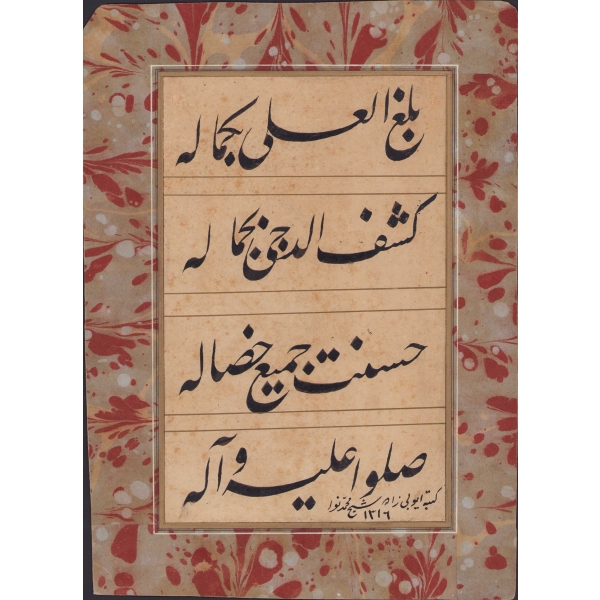 بلغ العلى بكماله
كشف الدجى بجماله
حسنت جميع خصاله
صلوا عليه وآله
كتبه ايوبى زاده شيخ محمد نورا
١٣١٦